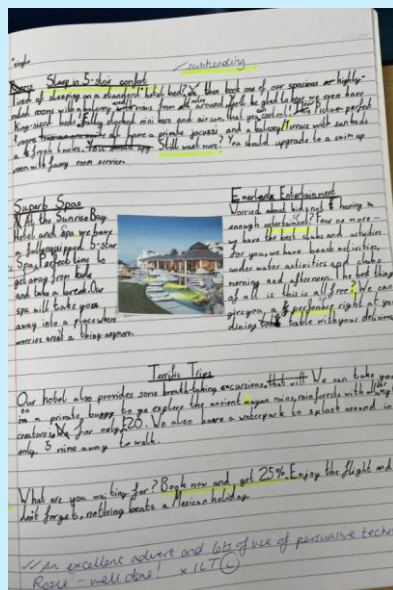 subheading
Sleep in 5-star comfort
Tired of sleeping on a standard hotel bed? then book one of our spacious or highly-
rated rooms with a balcony and views from all around you'll be glad to hear we even have
King-sized beds, fully stocked mini bars and air con, that you control! The Picture-perfect
rooms all have a private jacussi and a balcony/terrace with sun beds
& fresh towles. Still want more? You should upgrade to a swim up
room with fancy room service.
Superb Spas
At the Sunrise Bay
hotel and Spa we have
a fully equipped 5-star
Spa, perfect time to
get away from kids
and take a break. Our
spa will take you
away into a place where
worries aren't a thing anymore.
Entertainment
Worried about kids not having
enough entertainment? Fear no more -
we have the best clubs and activities
for you, we have beach activities,
under water activities and clubs
morning and afternoon. The best thing
of all is this is all free? We can
give you a perfomnce right at your
dining table with your delicious
Terrific Trips
Our hotel also provides some breath-taking excursions, that will We can take you
on a private buggy to go explore the ancient mayan ruins, rain forests with all
creatures, for only £20. We also have a waterpark to splash around in
only 5 mins away to walk.
What are you waiting for? Book now and get 25%. Enjoy the flight and
don't forget, nothing beats a Mexican holiday.
// An excellent advert and lots of use of persuasive techn
Rosie - well done! x 1LT